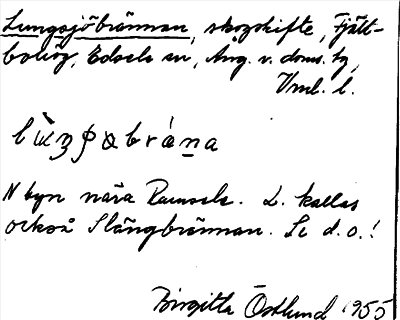 Lungsjöbrännan, skogskifte, Fjäll-
bolag, Edsele sn, Ång. v. doms. tg,
Vml. l.
N byn nära Ramsele. L. kallas
också Slångbrännan. Se d.o.!
Birgitta Östlund 1955